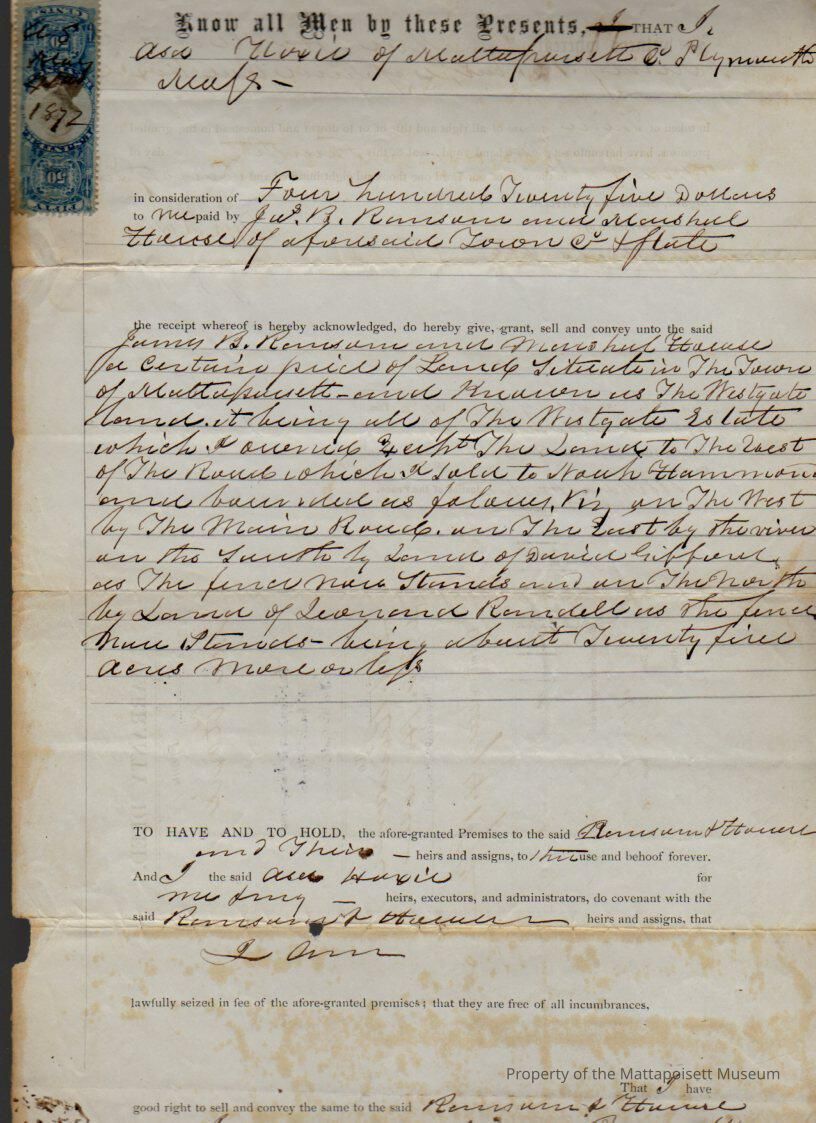 Know all Men by these Presents, THAT I,
Asa Hoxie of Mattapoisett Co Plymouth
Mass —
1872
in consideration of Four hundred Twenty five Dollars
to me paid by Jas. B. Ransom and Marshal
House of aforesaid Town Co & State
the receipt whereof is hereby acknowledged, do hereby give, grant, sell and convey unto the said
James B. Ransom and Marshal House
a Certain of Land Situate in The Town
of Mattapoisett - and Known as The Westgate
land. it being all of The Westgate Estate
which I owned Except The Land to The West
of The Road which I sold to Noah Hammond
and bounded as folows. Viz, on The West
by The Main Road. on The East by the river
on the South by Land of David Gifford,
as The fence now Stands and on The North
by Land of Leonard Randell as the fence
now Stands - being about Twenty five
acres more or less
TO HAVE AND TO HOLD, the afore-granted Premises to the said Ransom & House
and Their — heirs and assigns, to their use and behoof forever.
And I the said Asa Hoxie for
me & my — heirs, executors, and administrators, do covenant with the
said Ransom & House heirs and assigns, that
I am
lawfully seized in fee of the afore-granted premises; that they are free of all incumbrances,
Property of the Mattapoisett Museum
That I have
good right to sell and convey the same to the said Ransom & House